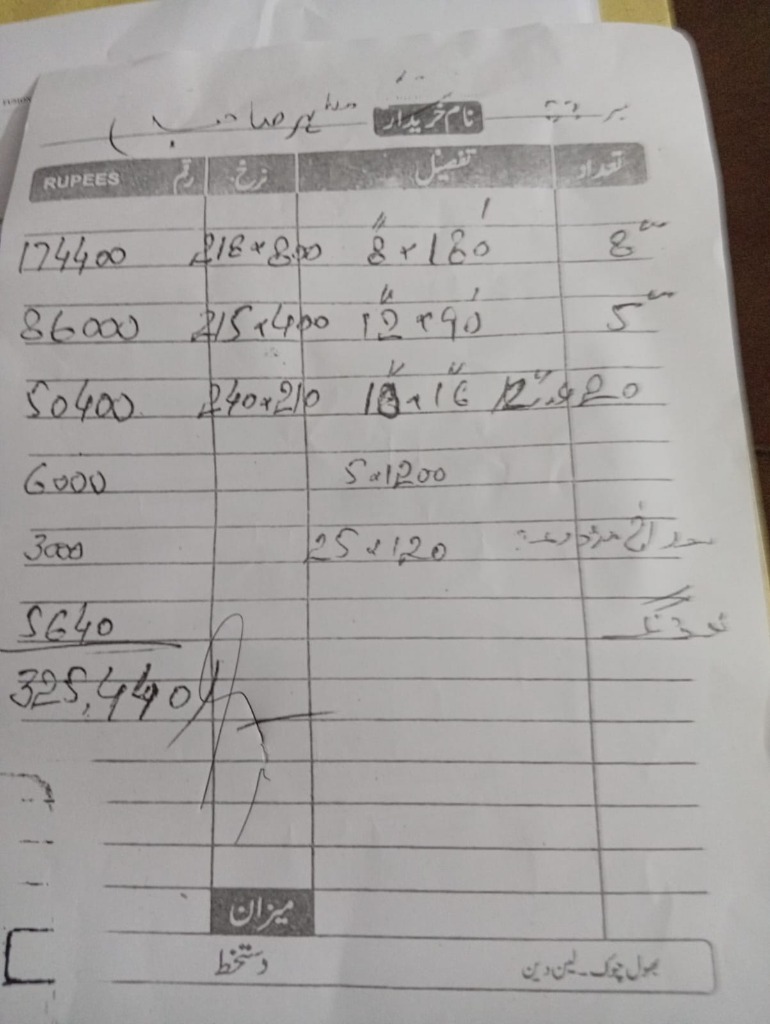 نام خریدار صاحب
تعداد تفصیل نرخ رقم RUPEES
8" 8" x 180' 218 x 800 174400
5" 12" x 90' 215 x 400 86000
12" x 20 10" x 16" 240 x 210 50400
5 x 1200 6000
25 x 120 3000
5640
325,440
میزان
بھول چوک۔لین دین دستخط